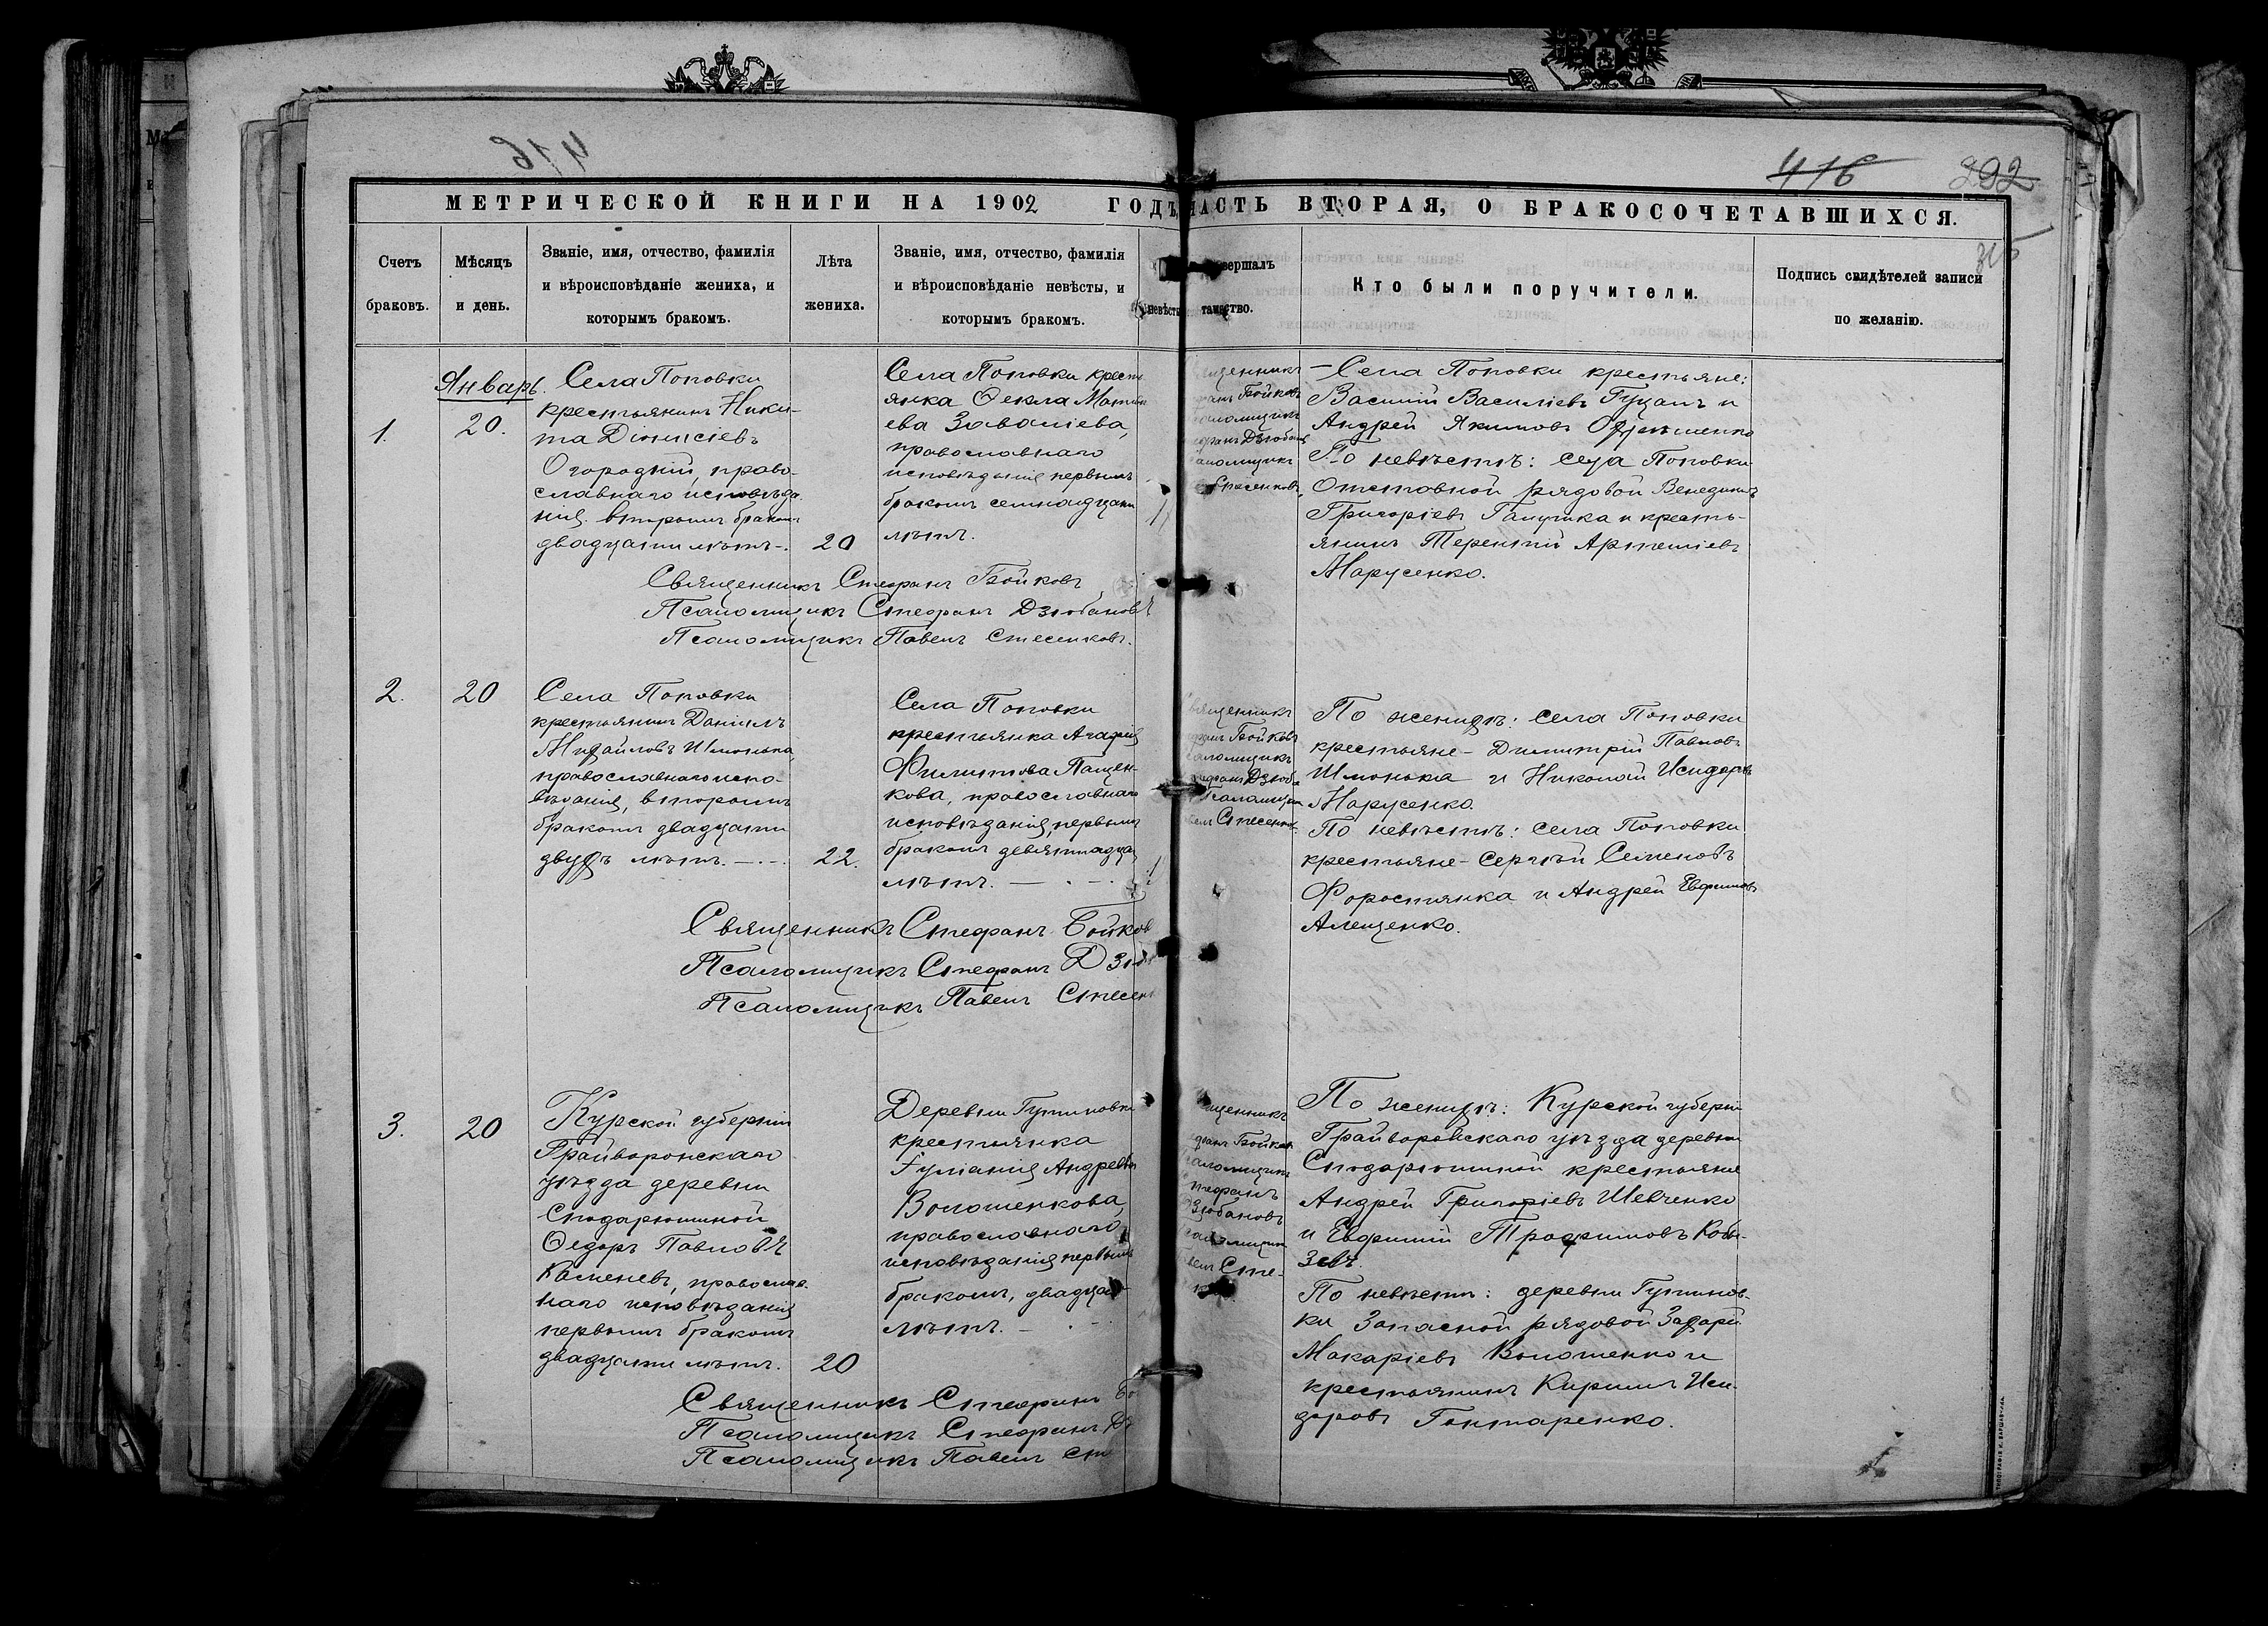 416
416 292
315
МЕТРИЧЕСКОЙ КНИГИ НА 1902 ГОДЪ ЧАСТЬ ВТОРАЯ, О БРАКОСОЧЕТАВШИХСЯ.
Счетъ
браковъ.
Мѣсяцъ
и день.
Званіе, имя, отчество, фамилія
и вѣроисповѣданіе жениха, и
которымъ бракомъ.
Лѣта
жениха.
Званіе, имя, отчество, фамилія
и вѣроисповѣданіе невѣсты, и
которымъ бракомъ.
невѣсты
вершалъ
таинство.
Кто были поручители.
Подпись свидѣтелей записи
по желанію.
1.
Январь.
20.
Села Поповки
крестьянинъ Ники-
та Діонисіевъ
Огородній, право-
славнаго исповѣда
нія. вторымъ бракомъ
двадцати лѣтъ-.
20
Села Поповки кресть
янка Ѳекла Матѳ
ева Завалiева,
православнаго
исповѣданія первымъ
бракомъ семнадцати
лѣтъ.
щенникъ
фанъ Бойковъ
саломщикъ
ефанъ Дзюбанов
саломщикъ
Стесенковъ
— Села Поповки крестьяне:
Василій Василіевъ Гуцалъ и
Андрей Якимовъ
По невѣстѣ: села Поповки
Отставной рядовой Венедиктъ
Григоріевъ Галушка и кресть-
янинъ Терентій Артеміевъ
Марусенко.
Священникъ Стефанъ Бойковъ
Псаломщикъ Стефанъ Дзюбановъ
Псаломщикъ Павелъ Стесенковъ.
2.
20
Села Поповки
крестьянинъ Даніилъ
Михайловъ Шмонька,
православнаго испо-
вѣданія, вторымъ
бракомъ двадцати
двухъ лѣтъ. —.—.
22.
Села Поповки
крестьянка Агафія
Филиппова Пащен-
кова, православнаго
исповѣданія, первымъ
бракомъ девятнадца
лѣтъ. — . —
вященникъ
ефанъ Бойковъ
саломщикъ
тефанъ Дзюба
Псаломщик
велъ Стесенков
По женихѣ: села Поповки
крестьяне - Димитрій Павловъ
Шмонька и Николай Исидоровъ
Марусенко.
По невѣстѣ: села Поповки
крестьяне - Сергѣй Семеновъ
Форостянка и Андрей Евфимовъ
Алещенко.
Священникъ Стефанъ Бойков
Псаломщикъ Стефанъ Дзюб
Псаломщикъ Павелъ Стесен
3.
20
Курской губерніи
Грайворонскаго
уѣзда деревни
Сподарюшиной
Ѳедоръ Павловъ
Каменевъ, правосла-
наго исповѣданія
первымъ бракомъ
двадцати лѣтъ.
20
Деревни Гутиновки
крестьянка
Іуліанія Андреева
Волошенкова,
православнаго
исповѣданія первымъ
бракомъ, двадцат
лѣтъ. — . —
щенникъ
фанъ Бойков
саломщикъ
тефанъ
Дзюбановъ
саломщик
велъ Сте-
По женихѣ: Курской губерніи
Грайворонскаго уѣзда деревни
Сподарюшиной крестьяне
Андрей Григоріевъ Шевченко
и Евфимій Трофимовъ Кобы-
зевъ.
По невѣстѣ: деревни Гутинов-
ки Запасной рядовой Захарій
Макаріевъ Волошенко и
крестьянинъ Кириллъ Иси-
доровъ Гонтаренко.
Священникъ Стефанъ Бо
Псаломщикъ Стефанъ Дз
Псаломщикъ Павелъ Ст